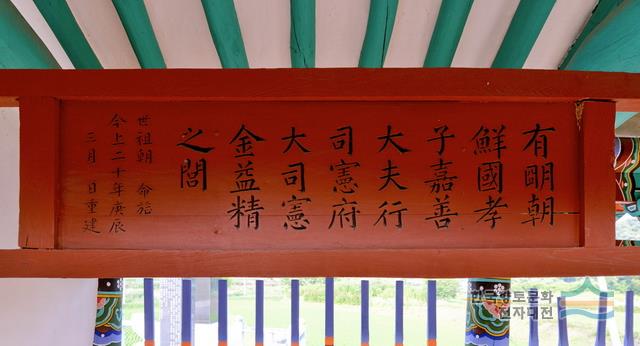 有明朝
鮮國孝
子嘉善
大夫行
司憲府
大司憲
金益精
之閭
世祖朝 命㫌
今上二十年庚辰
三月 日重建
한국향토문화
전자대전